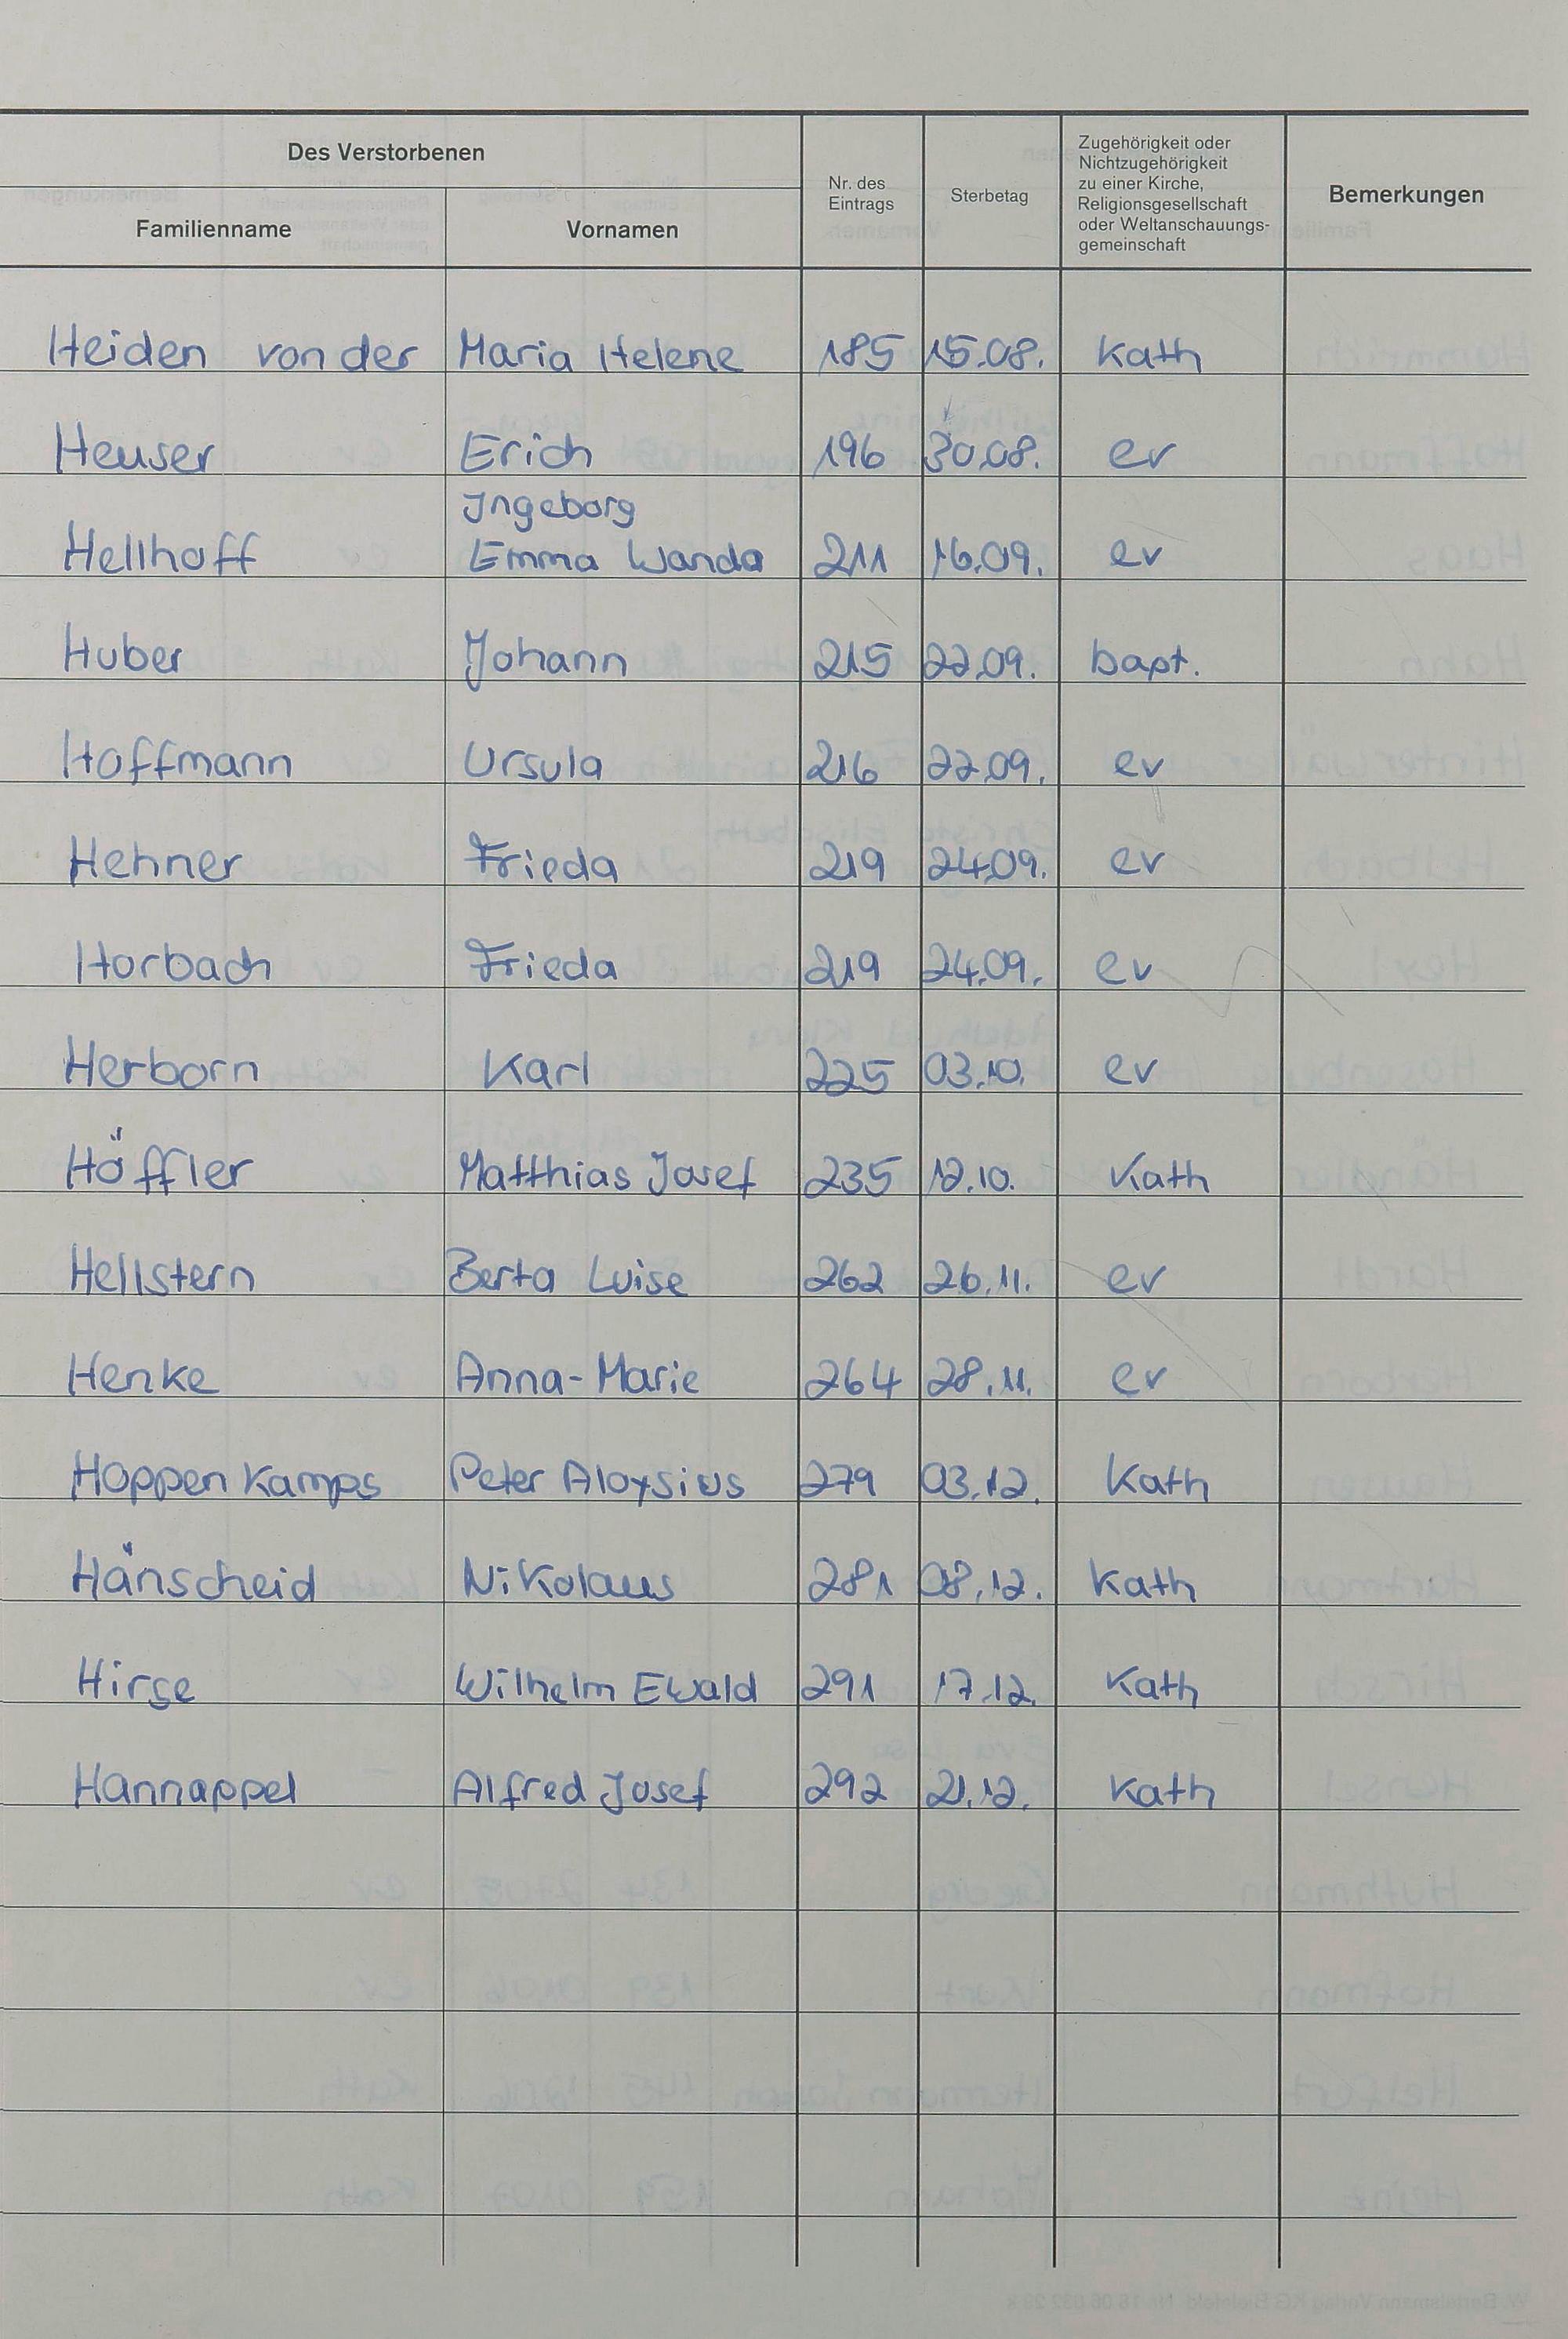 Des Verstorbenen
Familienname Vornamen Nr. des Eintrags Sterbetag Zugehörigkeit oder Nichtzugehörigkeit zu einer Kirche, Religionsgesellschaft oder Weltanschauungs-gemeinschaft Bemerkungen
Heiden von der Maria Helene 185 15.08. Kath
Heuser Erich 196 30.08. ev
Ingeborg
Hellhoff Emma Wanda 211 16.09. ev
Huber Johann 215 22.09. bapt.
Hoffmann Ursula 216 22.09. ev
Hehner Frieda 219 24.09. ev
Horbach Frieda 219 24.09. ev
Herborn Karl 225 03.10. ev
Höffler Matthias Josef 235 12.10. Kath
Hellstern Berta Luise 262 26.11. ev
Henke Anna-Marie 264 28.11. ev
Hoppen Kamps Peter Aloysius 279 03.12. Kath
Hänscheid Nikolaus 281 08.12. Kath
Hirse Wilhelm Ewald 291 17.12. Kath
Hannappel Alfred Josef 292 21.12. Kath